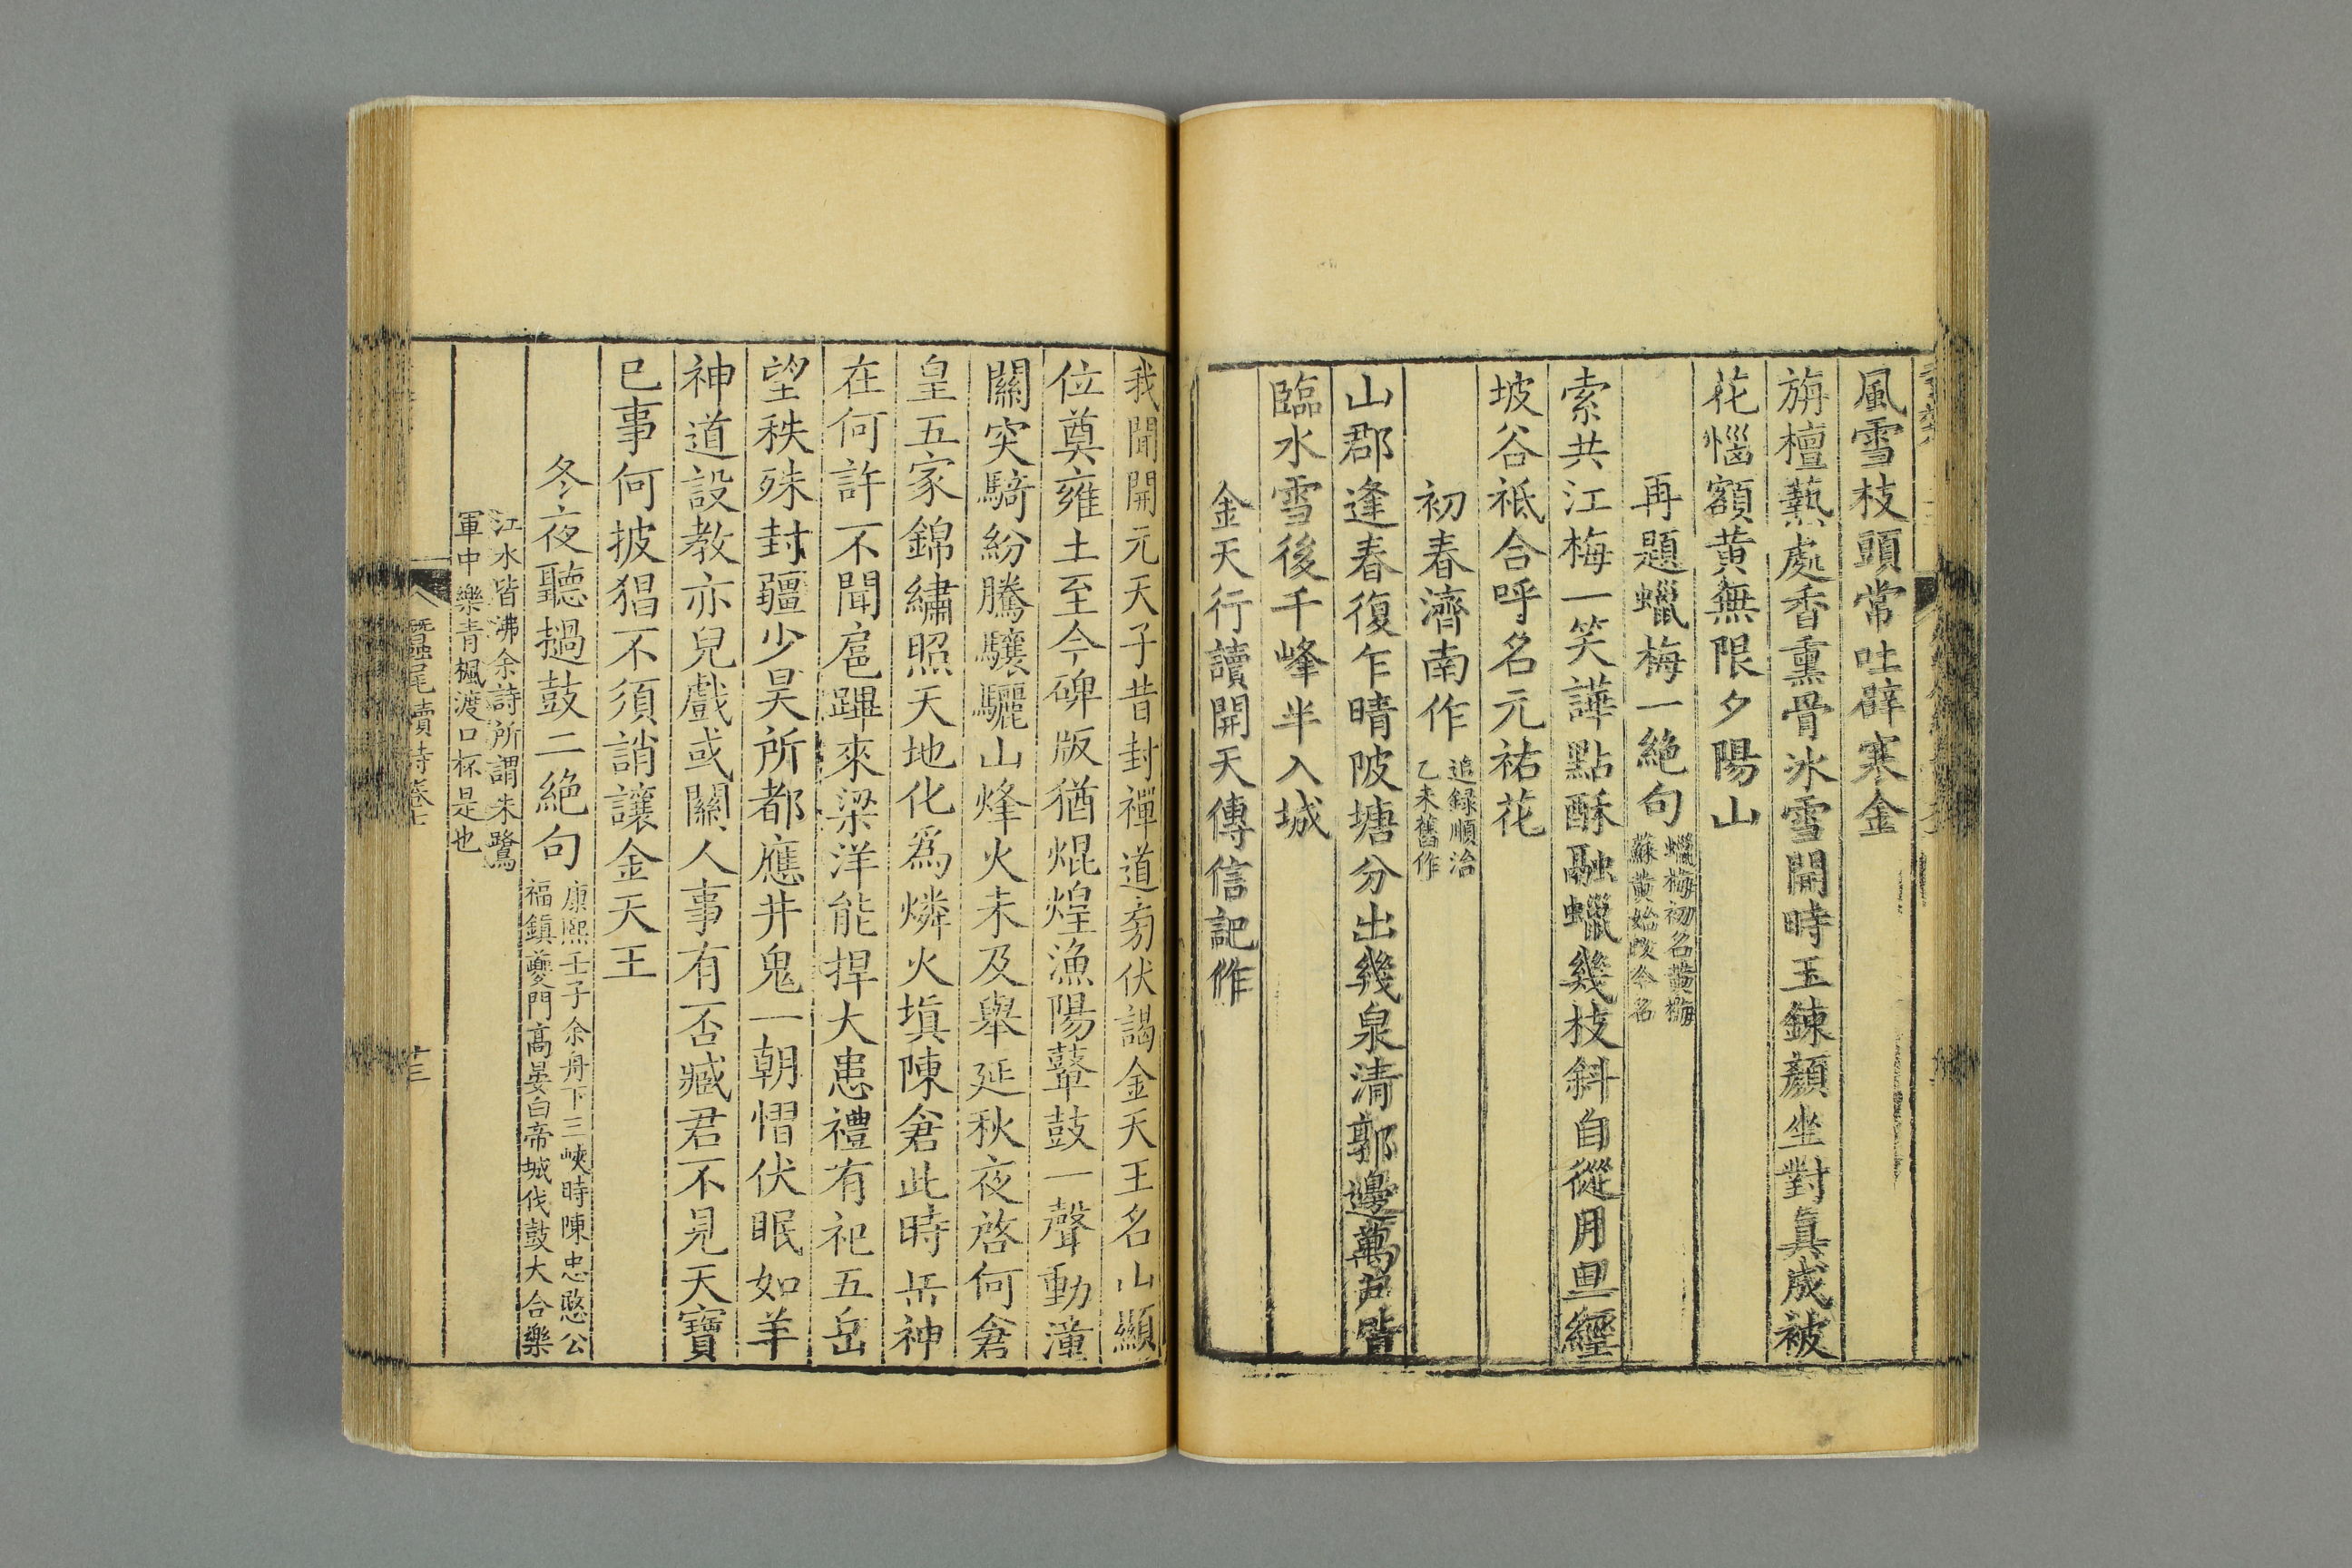 風雪枝頭常吐辟寒金
旃檀爇處香熏骨冰雪開時玉鍊顏坐對真成被
花惱額黃無限夕陽山
再題蠟梅一絕句蠟梅初名黃梅
蘇黃始改今名
索共江梅一笑譁點酥融蠟幾枝斜自從月旦經
坡谷祗合呼名元祐花
初春濟南作追録順治
乙未舊作
山郡逢春復乍晴陂塘分出幾泉清郭邊萬戶皆
臨水雪後千峰半入城
金天行讀開天傳信記作
我聞開元天子昔封禪道旁伏謁金天王名山顯
位奠雍土至今碑版猶焜煌漁陽鼙鼓一聲動潼
關突騎紛騰驤驪山烽火未及舉延秋夜啓何倉
皇五家錦繡照天地化爲燐火塡陳倉此時岳神
在何許不聞扈蹕來梁洋能捍大患禮有祀五岳
望秩殊封疆少昊所都應井鬼一朝慴伏眠如羊
神道設教亦兒戲或關人事有否臧君不見天寶
已事何披猖不須誚讓金天王
冬夜聽撾鼓二絕句康熙壬子余舟下三峽時陳忠愍公
福鎮夔門高晏白帝城伐鼓大合樂
江水皆沸余詩所謂朱鷺
軍中樂青楓渡口杯是也
蠶尾續詩卷七
廿三